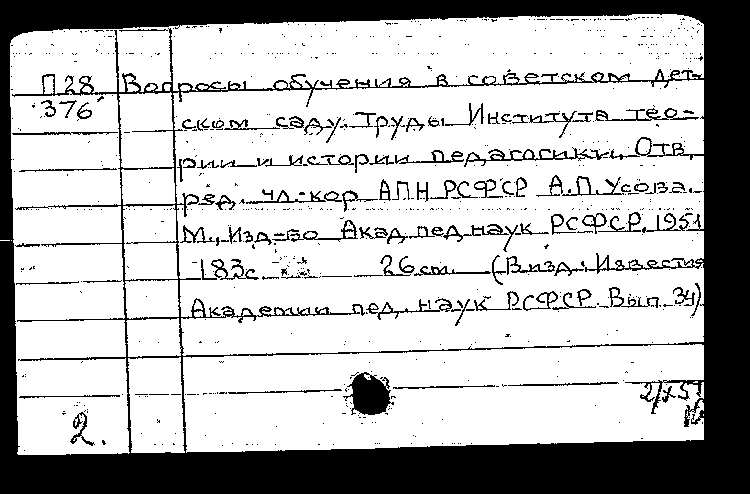 П28 Вопросы обучения в советском дет-
376 ском саду. Труды Института тео-
рии и истории педагогики. Отв.
ред. чл.-кор АПН РСФСР А.П. Усова.
М., Изд-во Акад. пед. наук РСФСР, 1951
183с. 26см. (В изд.: Известия
Академии пед. наук РСФСР. Вып. 34)
2.